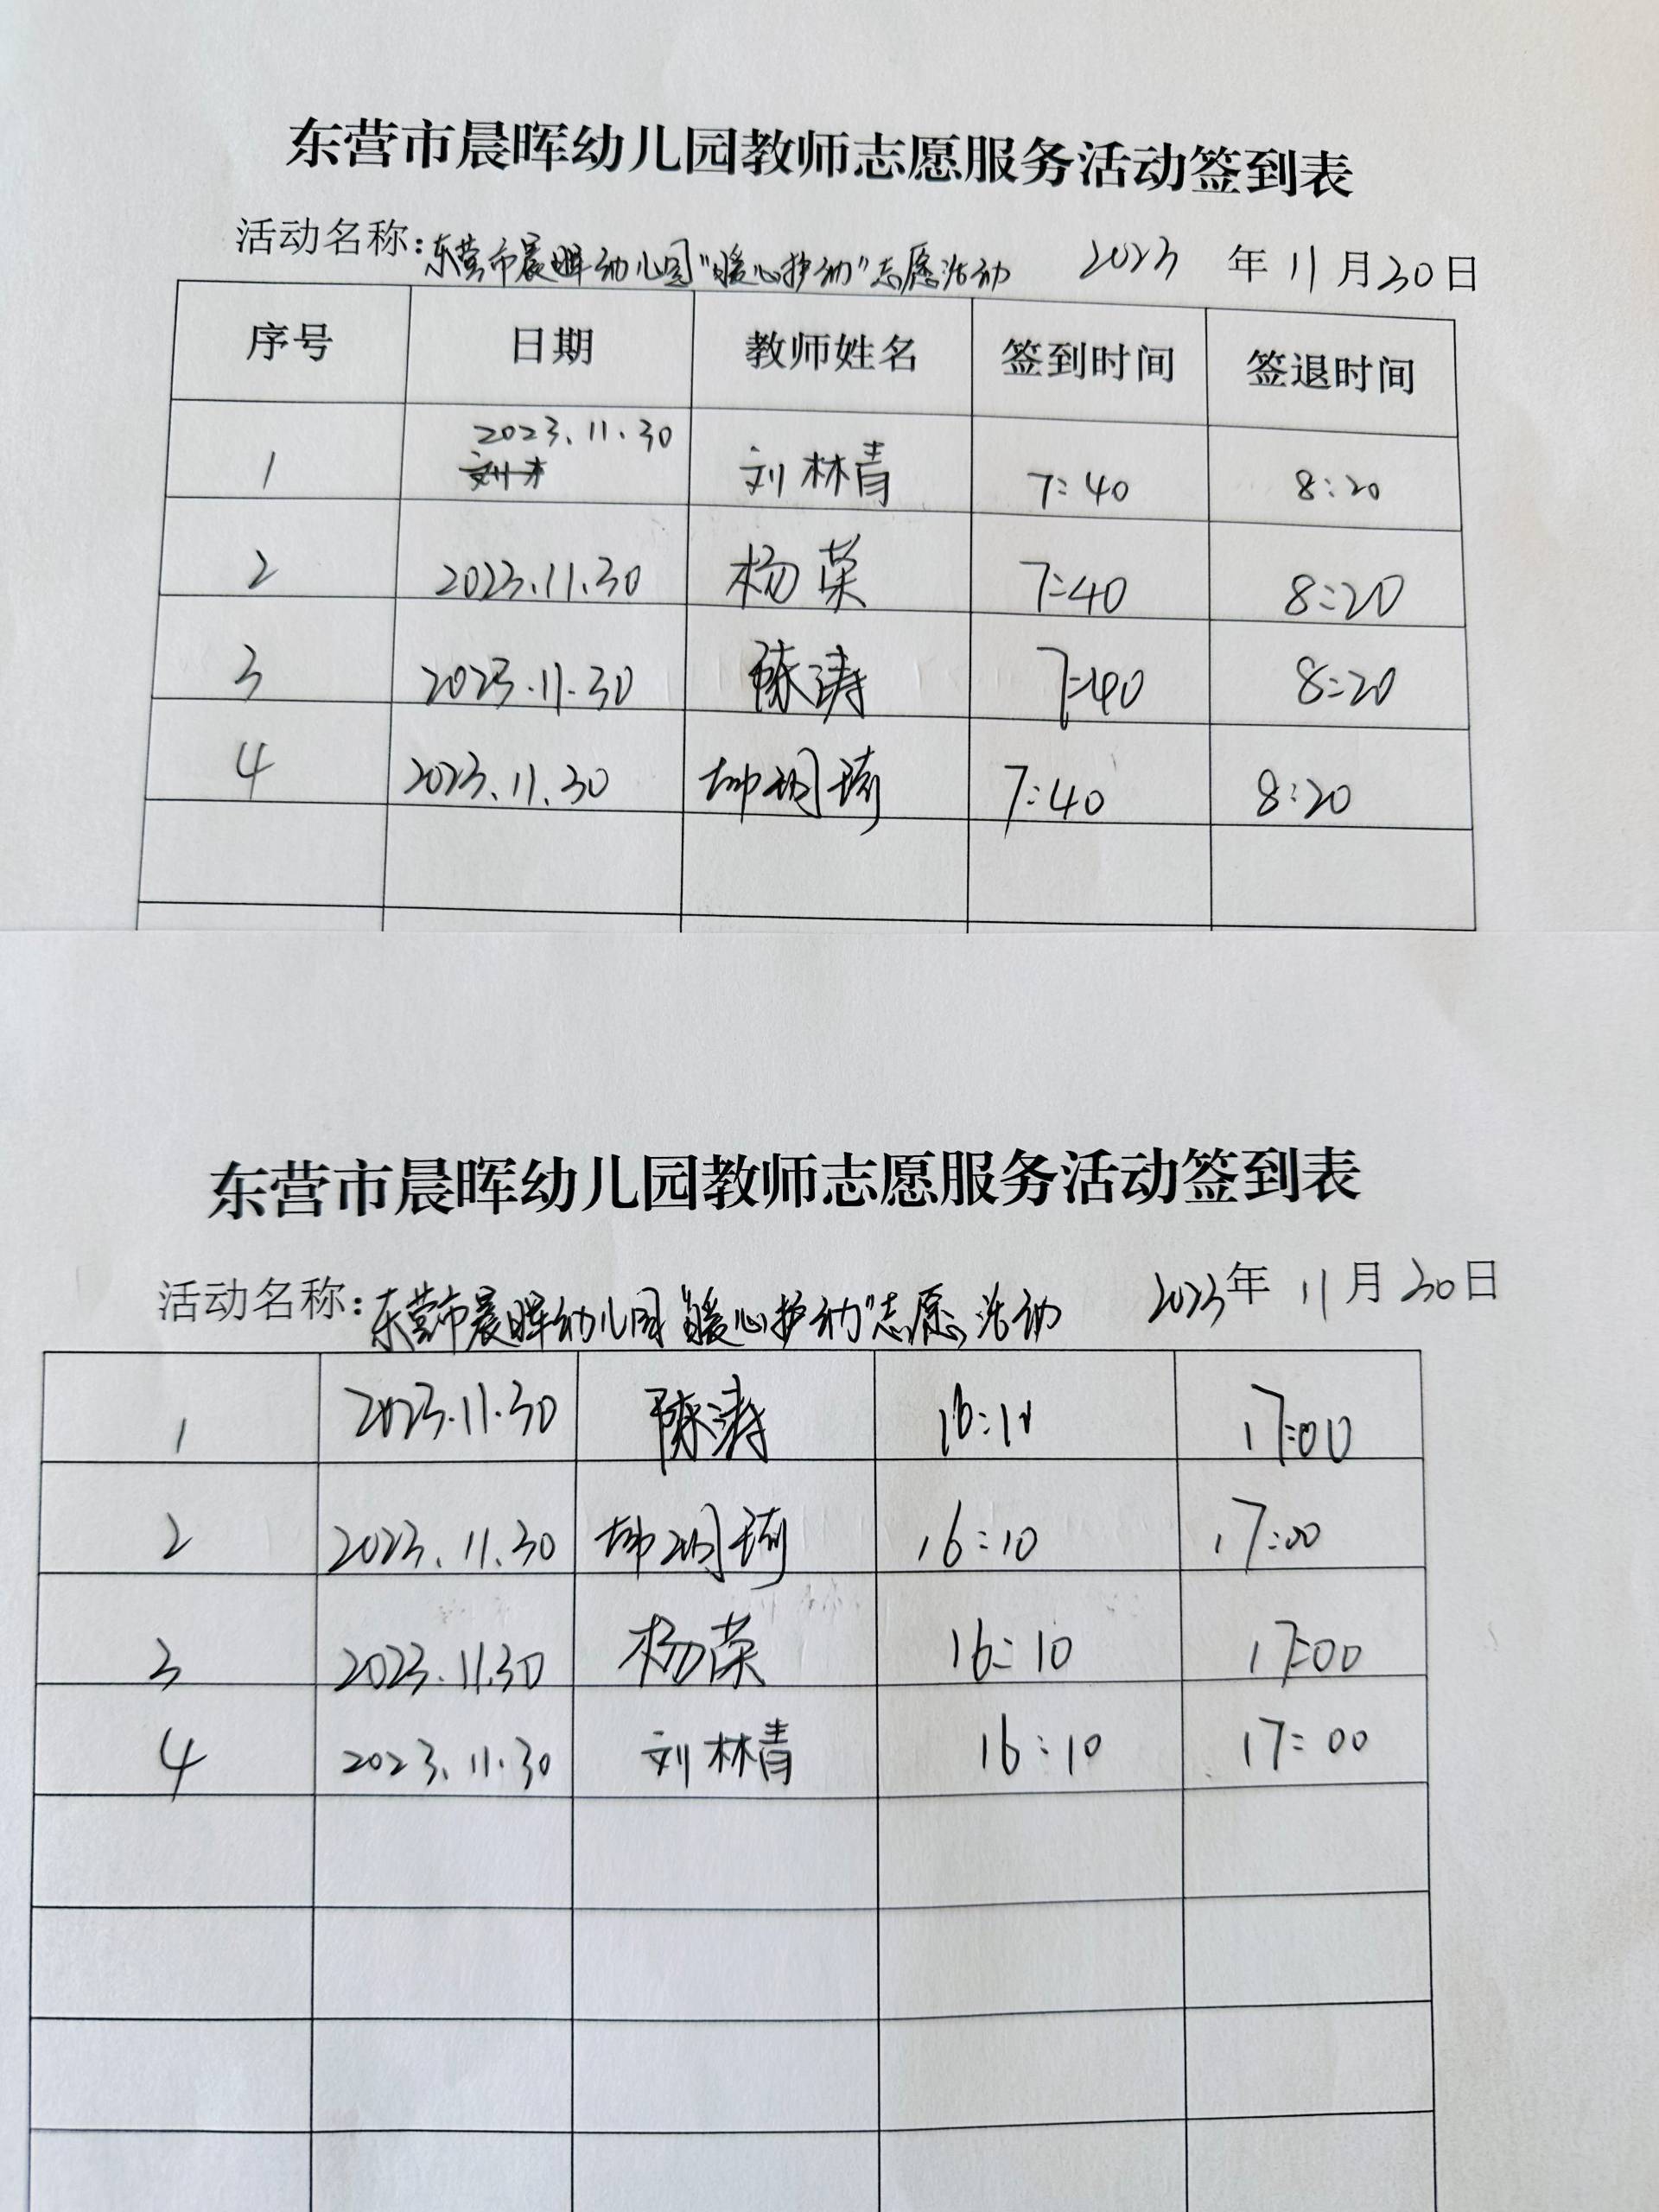 东营市晨晖幼儿园教师志愿服务活动签到表
活动名称:东营市晨晖幼儿园"暖心护幼"志愿活动 2023 年 11 月 30 日
序号 日期 教师姓名 签到时间 签退时间
1 2023.11.30 刘林青 7:40 8:20
2 2023.11.30 杨荣 7:40 8:20
3 2023.11.30 陈涛 7:40 8:20
4 2023.11.30 7:40 8:20
东营市晨晖幼儿园教师志愿服务活动签到表
活动名称:东营市晨晖幼儿园"暖心护幼"志愿活动 2023年 11月30日
1 2023.11.30 陈涛 16:10 17:00
2 2023.11.30 16:10 17:00
3 2023.11.30 杨荣 16:10 17:00
4 2023.11.30 刘林青 16:10 17:00